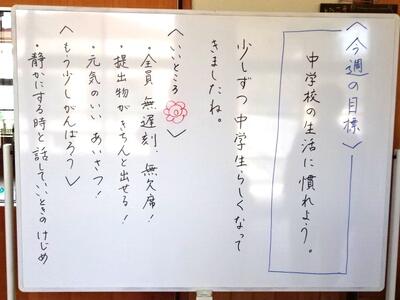 〈今週の目標〉
中学校の生活に慣れよう。
少しずつ中学生らしくなって
きましたね。
〈いいところ〉
・全員 無遅刻、無欠席！
・提出物がきちんと出せる！
・元気のいい あいさつ！
〈もう少しがんばろう〉
・静かにする時と話していいときのけじめ